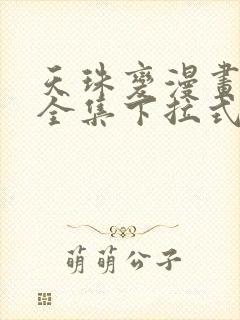 天珠變漫畫
全集下拉式
萌萌公子